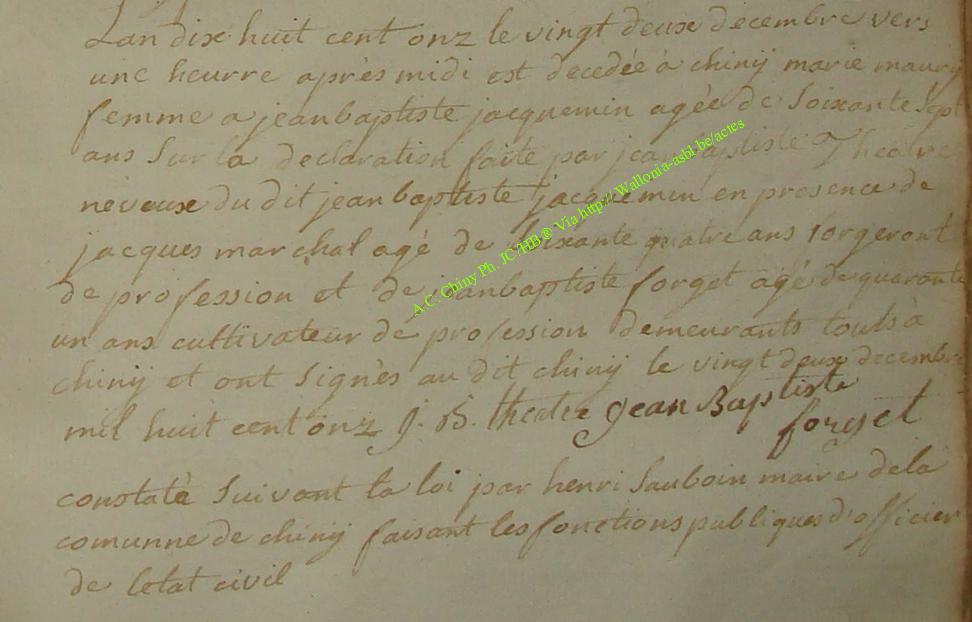 Lan dix huit cent onz le vingt deux decembre vers
une heurre après midi est decedée à chinÿ marie maury
femme a jeanbaptiste jacquemin agée de soixante sept
ans sur la declaration faite par jean baptiste Theatre
neveux du dit jeanbaptiste jacquemin en presence de
jacques marchal agé de soixante quatre ans forgeront
de profession et de jeanbaptiste forget agé de quarante
un ans cultivateur de profession demeurants touts à
chinÿ et ont signès au dit chinÿ le vingt deux decembre
mil huit cent onz J. B. theatre Jean Baptiste
forget
constatè suivant la loi par henri Sauboin maire de la
comunne de chinÿ faisant les fonctions publiques d'officier
de letat civil
A.C. Chiny Ph. JC/HB® Via http://Wallonia-asbl.be/actes